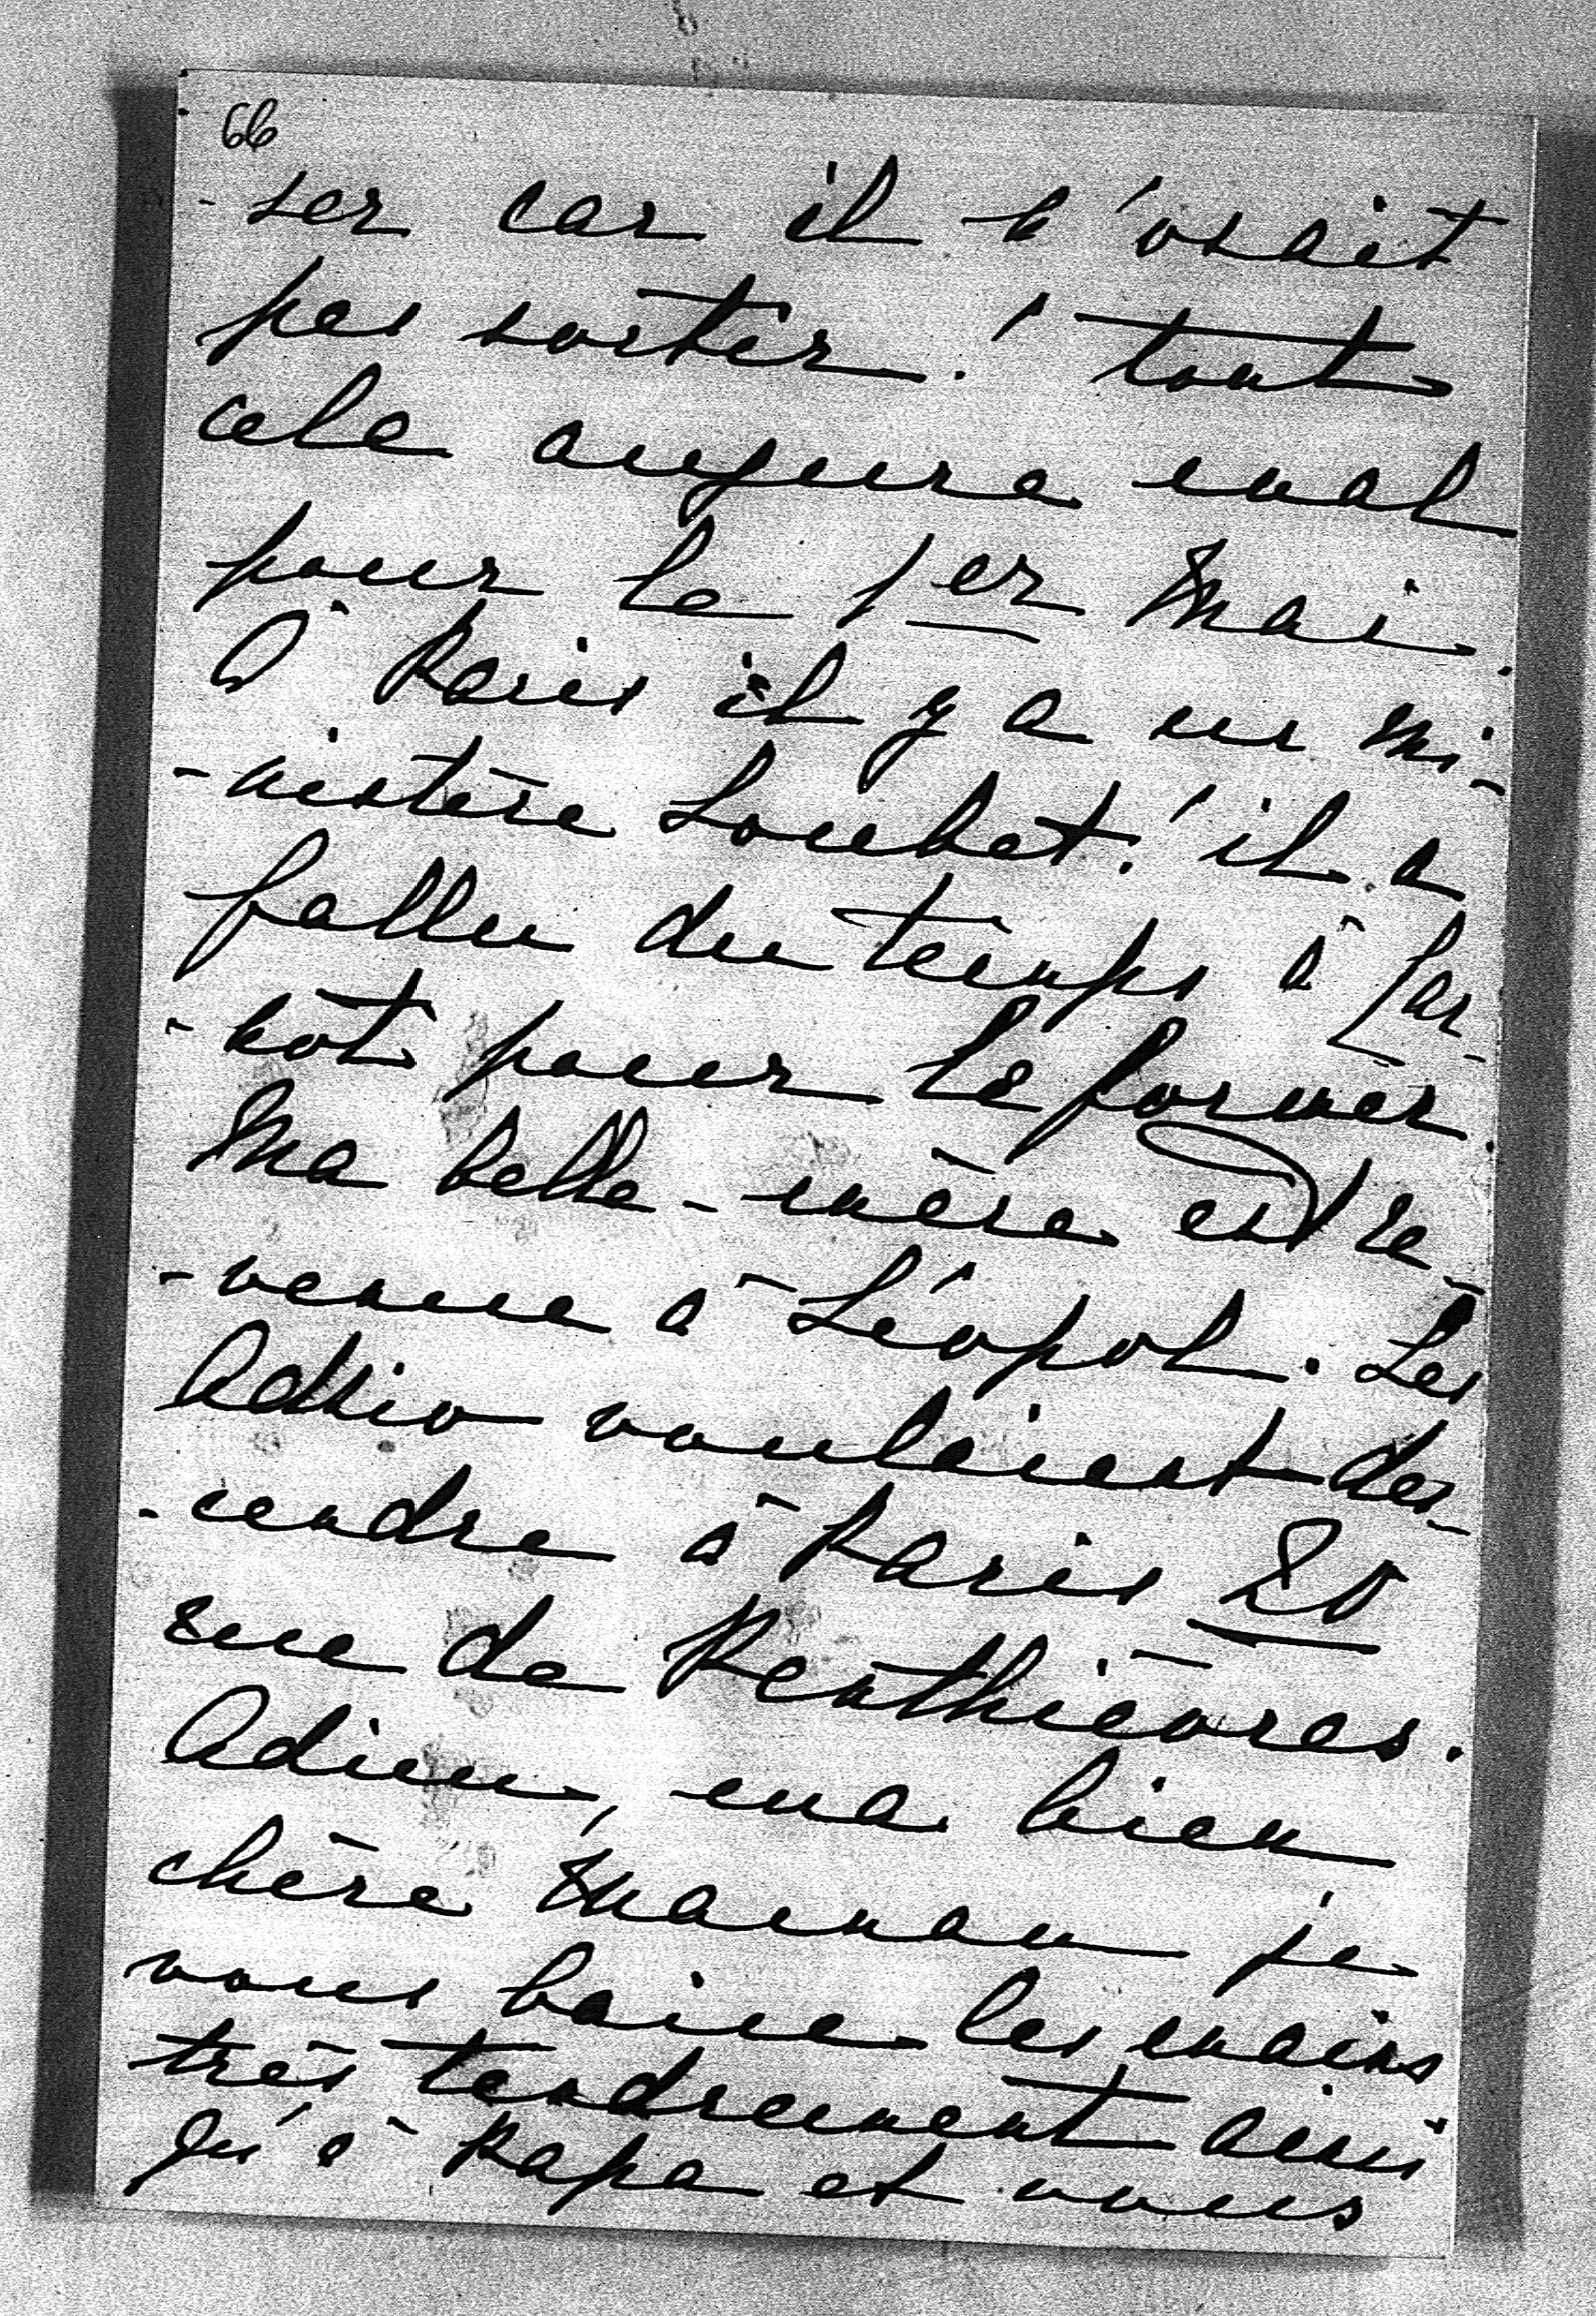 66
-ser car il n'osait
pas sortir! tout
cela augure mal
pour le 1er Mai.
A Paris il y a un mi-
-nistère Loubet! il a
fallu du temps à Car-
-not pour le former.
Ma belle-mère est re-
-venue à Léopol. Les
Adzio voulaient des-
-cendre à Paris 20
rue de Penthièvres.
Adieu, ma bien
chère Maman je
vous baise les mains
très tendrement ainsi
qu'à Papa et vous